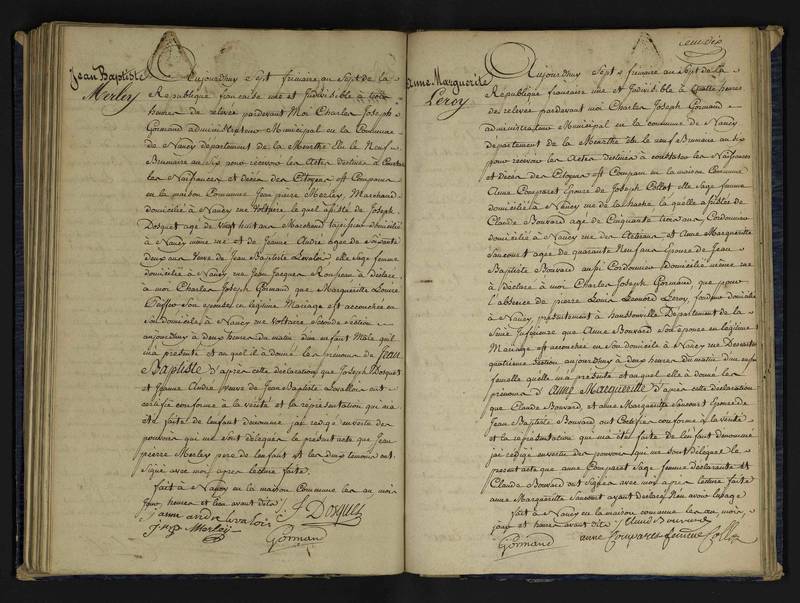 Jean Baptiste
Merley
Aujourdhuy Sept frimaire an Sept de la
Republique francaise une et Indivisible à trois
heures de relevée pardevant Moi Charles Joseph
Gormand administrateur Municipal en la Commune
de Nancy departement de la Meurthe Elu le Neuf
Brumaire an Six pour recevoir les Actes destinés à Constater
les Naissances et décès des Citoyens est Comparu
en la maison Commune Jean pierre Merley, Marchand
domicilié à Nancy rue Voltaire le quel assisté de Joseph
Dosquet age de Vingt huit ans Marchand tapissier domicilié
à Nancy même rue et de Jeanne André agée de soixante
deux ans Veuve de Jean Baptiste Levaloir elle Sage femme
domiciliée à Nancy rue Jean Jacques Rousseau à déclaré
à moi Charles Joseph Gormand que Margueritte Louise
son epouse en légitime Mariage est accouchée en
son domicile à Nancy rue Voltaire Seconde Section
aujourdhuy à deux heures du matin d'un enfant Male qu'il
ma présenté et auquel il à donné les prenoms de Jean
Baptiste D'après cette déclaration que Joseph Dosquet
et Jeanne André Veuve de Jean Baptiste Levalloir ont
certifié conforme à la vérité et la réprésentation qui ma
été faite de l'enfant denommé j'ai redigé en vertu des
pouvoirs qui me sont délégués le présent acte que Jean
pierre Merley pere de l'enfant et les deux temoins ont
Signé avec moi après lecture faite.
fait à Nancy en la maison Commune les an, mois
jour, heures et lieu avant dits
janne andre levaloir J: Dosquet
Merley
Gormand
Anne Marguerite
Leroy
Aujourdhuy Sept frimaire an Sept de la
Republique francaise une et Indivisible à quatre heures
de relevée pardevant moi Charles Joseph Gormand
administrateur Municipal en la commune de Nancy
departement de la Meurthe Elu le neuf Brumaire an Six
pour recevoir les Actes destinés à constater les Naissances
et décès des Citoyens est Comparu en la maison Commune
Anne Comparet Epouse de Joseph Collot elle Sage femme
domiciliée à Nancy rue de la hache la quelle assistée de
Claude Bouvard agé de Cinquante trois ans Cordonnier
domicilié à Nancy rue des Artisans et Anne Margueritte
Saucourt agée de quarante Neuf ans Epouse de Jean
Baptiste Bouvard aussi Cordonnier domiciliée même rue
à déclaré à moi Charles Joseph Gormand, que pour
l'absence de pierre Louis Leonord Leroy, domicilié
à Nancy, présentement à Departement de la
Seine Inférieure que Anne Bouvard Son épouse en légitime
Mariage est accouchée en son domicile à Nancy rue Descartes
quatrième Section, aujourdhuy à deux heures du matin d'un enfant
femelle quelle ma présenté et auquel elle à donné les
prenoms d'Anne Margueritte d'après cette declaration
que Claude Bouvard, et anne Margueritte Saucourt Epouse de
Jean Baptiste Bouvard ont Certifiés conforme à la vérité
et la réprésentation qui ma été faite de l'enfant denommé
j'ai redigé en vertu des pouvoirs qui me sont délégués le
present acte que anne Comparet Sage femme déclarante et
Claude Bouvard ont Signés avec moi après lecture faite
anne Margueritte Saucourt ayant declaré n'en avoir lusage
fait à Nancy en la maison commune les an, mois
jour et heures avant dits Claud Bouvard
Gormand anne Comparet femme Collot